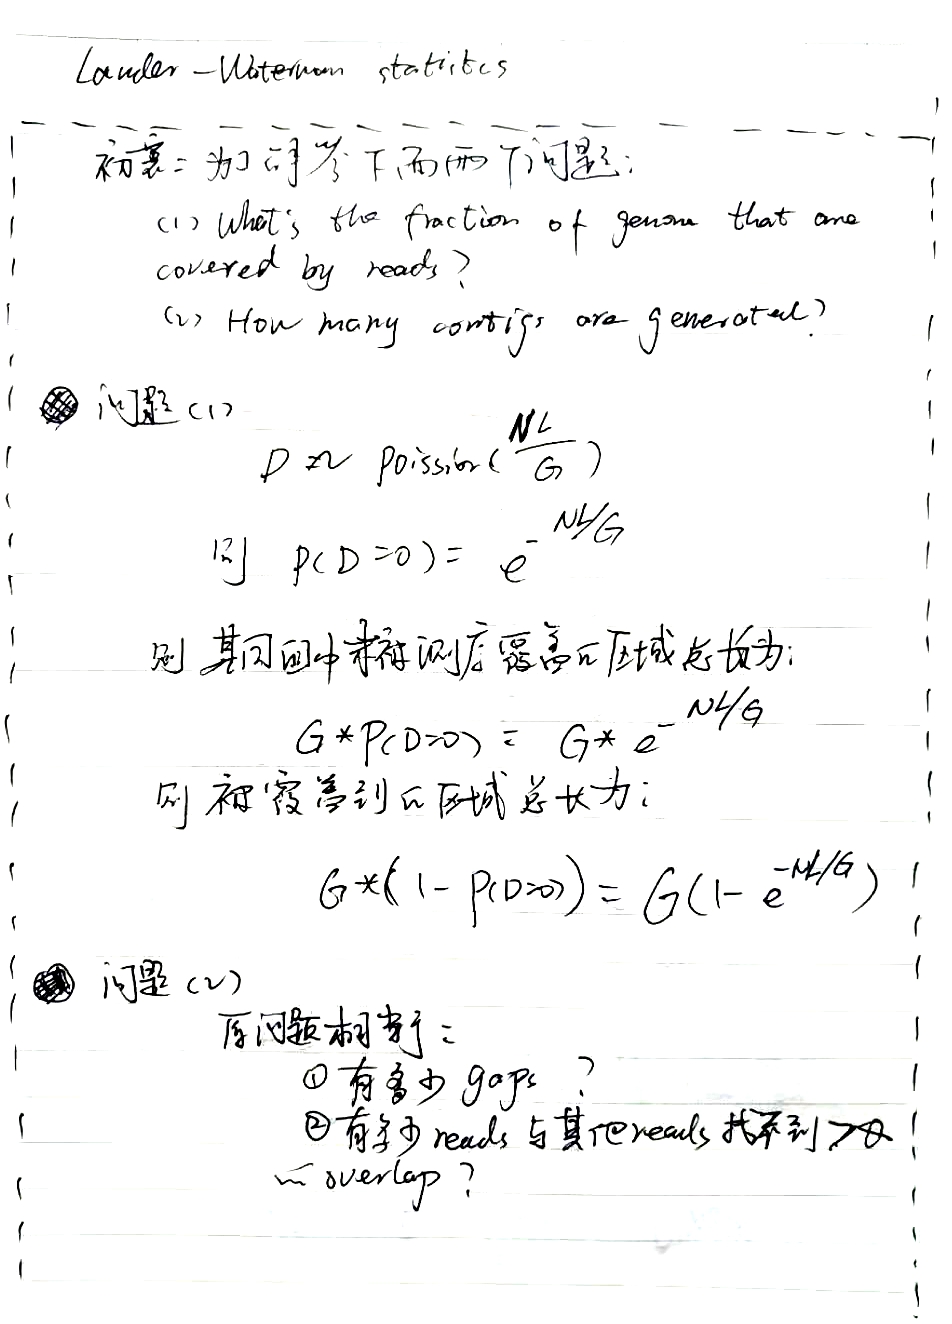 Lander-Waterman statistics
初衷：为了解答下面两个问题：
(1) What's the fraction of genome that are
covered by reads?
(2) How many contigs are generated?
问题(1)
D ~ Poission(NL/G)
则 P(D=0) = e^-NL/G
则 基因组中未被测序覆盖的区域总长为：
G*P(D=0) = G*e^-NL/G
则 被覆盖到的区域总长为：
G*(1-P(D=0)) = G(1-e^-NL/G)
问题(2)
原问题相当于：
① 有多少 gaps ?
② 有多少 reads 与其他 reads 找不到 >θ
的 overlap ?